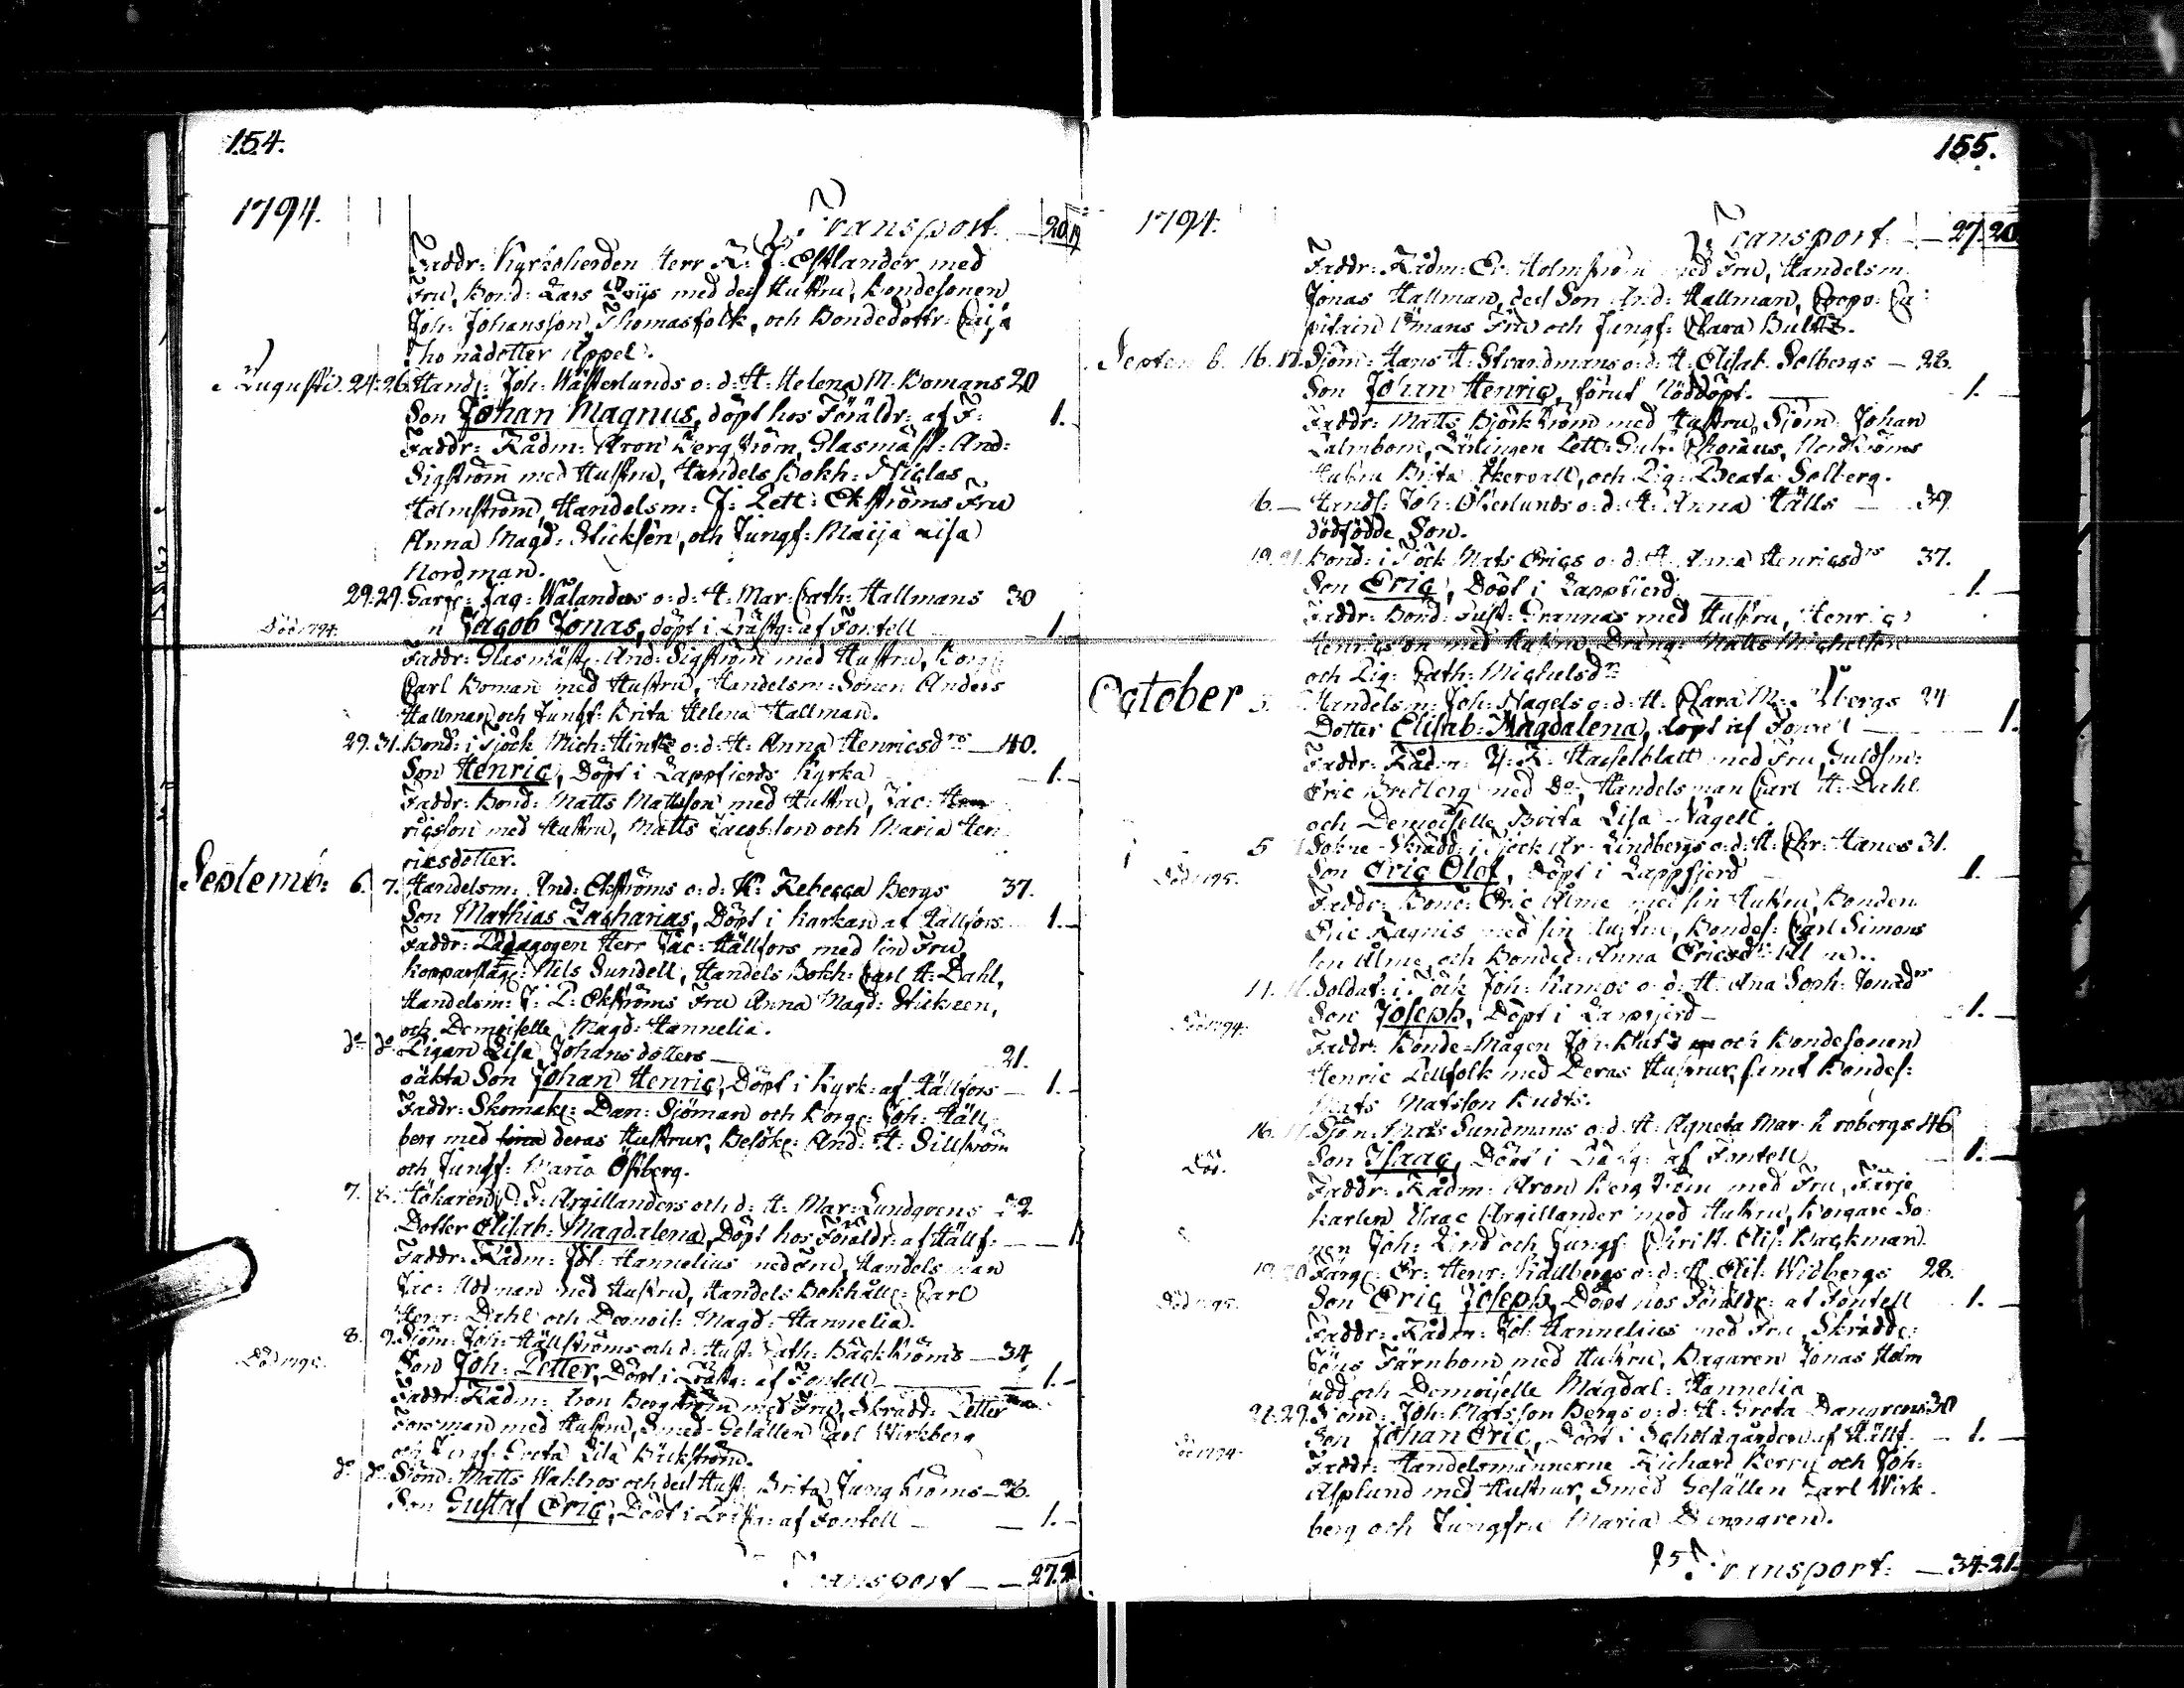 154.
1794.
Transport. — 20 19
Faddr: Kyrkoherden Herr E. J. Estlander med
Fru, Bond: Lars med des Hustru, Bondesonen
Joh: Johansson Thomasfolk, och Bondedottr: Caija
Thomadotter Appel.
Augusti. 24. 26. Hand: Joh: Wästerlunds o: d: H: Helena M. Bomans 20
Son Johan Magnus, döpt hos Föräldr: af F: 1.
Faddr: Rådm: Aron Bergström, Glasmäst: And:
Sigström med Hustru, Handels Bokh: Niclas
Holmström, Handelsm: J: Pett: Ekströms Fru
Anna Magd: Hicksén, och Jungf: Maija Lisa
Nordman.
29. 29. Garfv: Jac: Wålanders o: d: H: Mar: Cath: Hallmans 30
Död 1794. Jacob Jonas, döpt i Prästg: af Fontell 1.
Faddr: Glasmäst: And: Sigström med Hustru, Borg:
Carl Boman med Hustru, Handelsm: Sonen Anders
Hallman och Jungf: Brita Helena Hallman.
29. 31. Bond: i Tjöck Mich: Hinks o: d: H: Anna Henricsdrs — 40.
Son Henric, Döpt i Lappfjerds Kyrka — 1. —
Faddr: Bond: Matts Mattsson med Hustru, Jac: Hen
ricsson med Hustru, Matts Jacobsson och Maria Hen
ricsdotter.
Septemb: 6. 7. Handelsm: And: Ekströms o: d: H: Rebecca Bergs 37.
Son Mathias Zacharias, Döpt i Kyrkan af Hällfors 1. —
Faddr: Pädagogen Herr Jac: Hällfors med sin Fru,
Kopparslag: Nils Sundell, Handels Bokh: Carl H: Dahl,
Handelsm: J: P: Ekströms Fru Anna Magd: Hicksen,
och Demoiselle Magd: Hannelia.
do do Pigan Lisa Johansdotters — 21.
oäkta Son Johan Henric, Döpt i Kyrk: af Hällfors — 1. —
Faddr: Skomak: Dan: Sjöman och Borg: Joh: Häll
berg med sina deras Hustrur, Besök: And: H: Sillström
och Jungf: Maria Östberg.
7. 8. Hökaren C: F: Argillanders och d: H: Mar: Lundqvens 32
Dotter Elisab: Magdalena, Döpt hos Föräldr: af Hällf: — — 1
Faddr: Rådm: Joh: Hannelius med Fru, Handelsman
Jac: Ådman med Hustru, Handels Bokhåll: Carl
Henr: Dahl och Demois: Magd: Hannelia.
8. 9. Sjöm: Joh: Hällströms och d: Hust: Cath: Bäckströms — 34
Död 1795. Son Joh: Petter, Döpt i Prästg: af Fontell — 1. —
Faddr: Rådm: Aron Bergström med Fru, Skrädd: Petter
Forsman med Hustru, Smed-Gesällen Carl Wirkberg
och Jungf: Greta Lisa Bäckström.
do do Sjöm: Matts Wahlroos och des Hust: Brita Ljungströms — 26.
Son Gustaf Eric, Döpt i Prästg: af Fontell — — 1. —
Transport — — 27. 20
155.
1794.
Transport. — 27. 20.
Faddr: Rådm: Er: Holmström med Fru, Handelsm:
Jonas Hallman, des Son And: Hallman, Coopv: Ca
pitain Ömans Fru och Jungf: Clara Bults.
Septemb. 16. 17. Sjöm: Hans H: Strandmans o: d: H: Elisab. Solbergs — 28.
Son Johan Henric, förut Nöddöpt. — 1. —
Faddr: Matts Björkström med Hustru, Sjöm: Johan
Palmbom, Lärlingen Pett: Gust: Choræus, Nordströms
Hustru Brita Åkervall, och Pig: Beata Solberg.
16. — Handl: Joh: Österlunds o: d: H: Anna Hälls — 39.
dödfödde Son.
19. 21. Bond: i Tjöck Mats Erics o: d: H: Anna Henricsdrs 37.
Son Eric, Döpt i Lappfjerd — 1. —
Faddr: Bond: Gust: Grannas med Hustru, Henric
Henricsson med Hustru, Dräng: Matts Michelsson
och Pig: Cath: Michelsdr
October 3. Handelsm: Joh: Nagels o: d: H: Clara M: bergs 24
Dotter Elisab: Magdalena, döpt af Fontell — — 1.
Faddr: Rådm: Z: F: Hasselblatt med Fru, Guldsm:
Eric Bredberg med Do, Handelsman Carl H: Dahl
och Demoiselle Brita Lisa Nagell.
5 Sokne-Skrädd: i Tjöck Ar: Lindbergs o: d: H: Chr: Hanes 31.
Död 1795. Son Eric Olof, Döpt i Lappfjerd — 1. —
Faddr: Bond: Eric Ålme med sin Hustru, Bonden
Eric Ragnis med sin Hustru, Bondes: Carl Simons
son Alme, och Bonded: Anna Ericsdr
11. Soldat: i Tjöck Joh: Kamps o: d: H: Ana Soph: Jonædrs
Död 1794. Son Joseph, Döpt i Lappfjerd — 1. —
Faddr: Bonde-Mågen Joh: och Bondesonen
Henric Pellfolk med Deras Hustrur, samt Bondes:
Mats Matsson Kudts.
16. 17. Sjöm: Mats Sundmans o: d: H: Agneta Mar: Brobergs 46
Död. Son Isaac, Döpt i Prästg: af Fontell — 1. —
Faddr: Rådm: Aron Bergström med Fru, Färje
karlen Isaac Argillander med Hustru, Borgare So
nen Joh: Lind och Jungf: Christ: Elis: Backman.
19. 20. Färg: Er: Henr: Källbergs o: d: H: Elis: Widbergs 28.
Död 1795. Son Eric Joseph, Döpt hos Föräldr: af Fontell 1. —
Faddr: Rådm: Joh: Hannelius med Fru, Skrädd:
Jöns Färnbom med Hustru, Bagaren Jonas Holm
udd och Demoiselle Magdal: Hannelia
28. 29. Sjöm: Joh: Matsson Bergs o: d: H: Greta Damgrens 30
Död 1794. Son Johan Eric, Döpt i Scholægården af Hällf. — 1. —
Faddr: Handelsmännerne Richard Kerry och Joh:
Asplund med Hustrur, Smed Gesällen Carl Wirk
berg och Jungfru Maria Damgren.
Transport: — 34. 21.